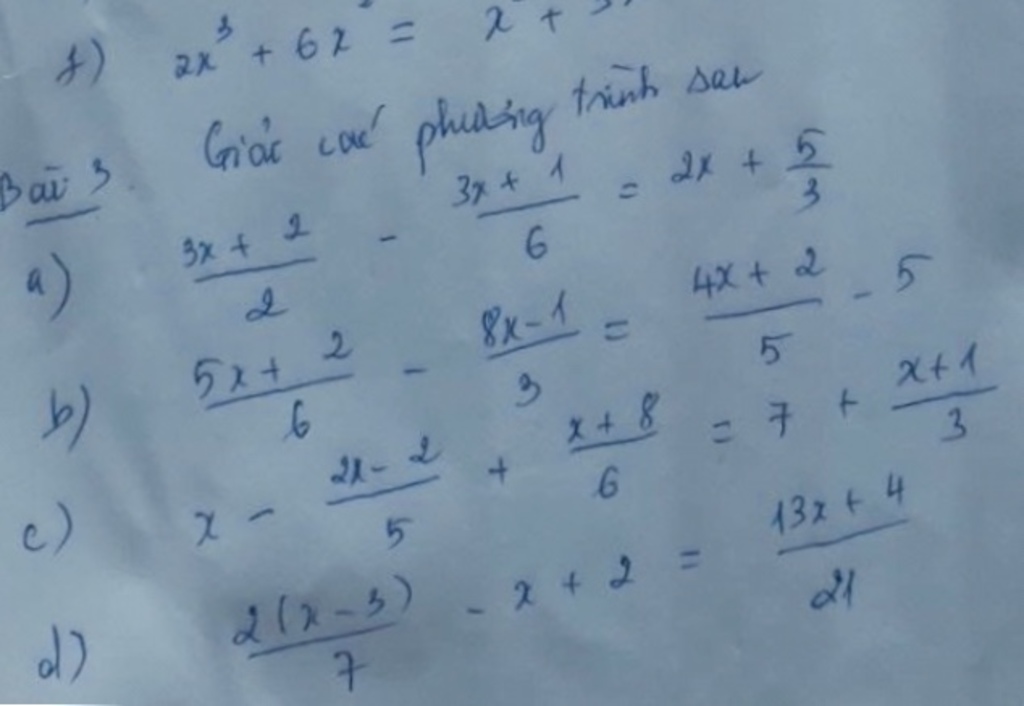 f) 2x³ + 6x² = x² + 3x
Bài 3. Giải các phương trình sau
a) (3x + 2)/2 - (3x + 1)/6 = 2x + 5/3
b) (5x + 2)/6 - (8x - 1)/3 = (4x + 2)/5 - 5
c) x - (2x - 2)/5 + (x + 8)/6 = 7 + (x + 1)/3
d) 2(x - 3)/7 - x + 2 = (13x + 4)/21